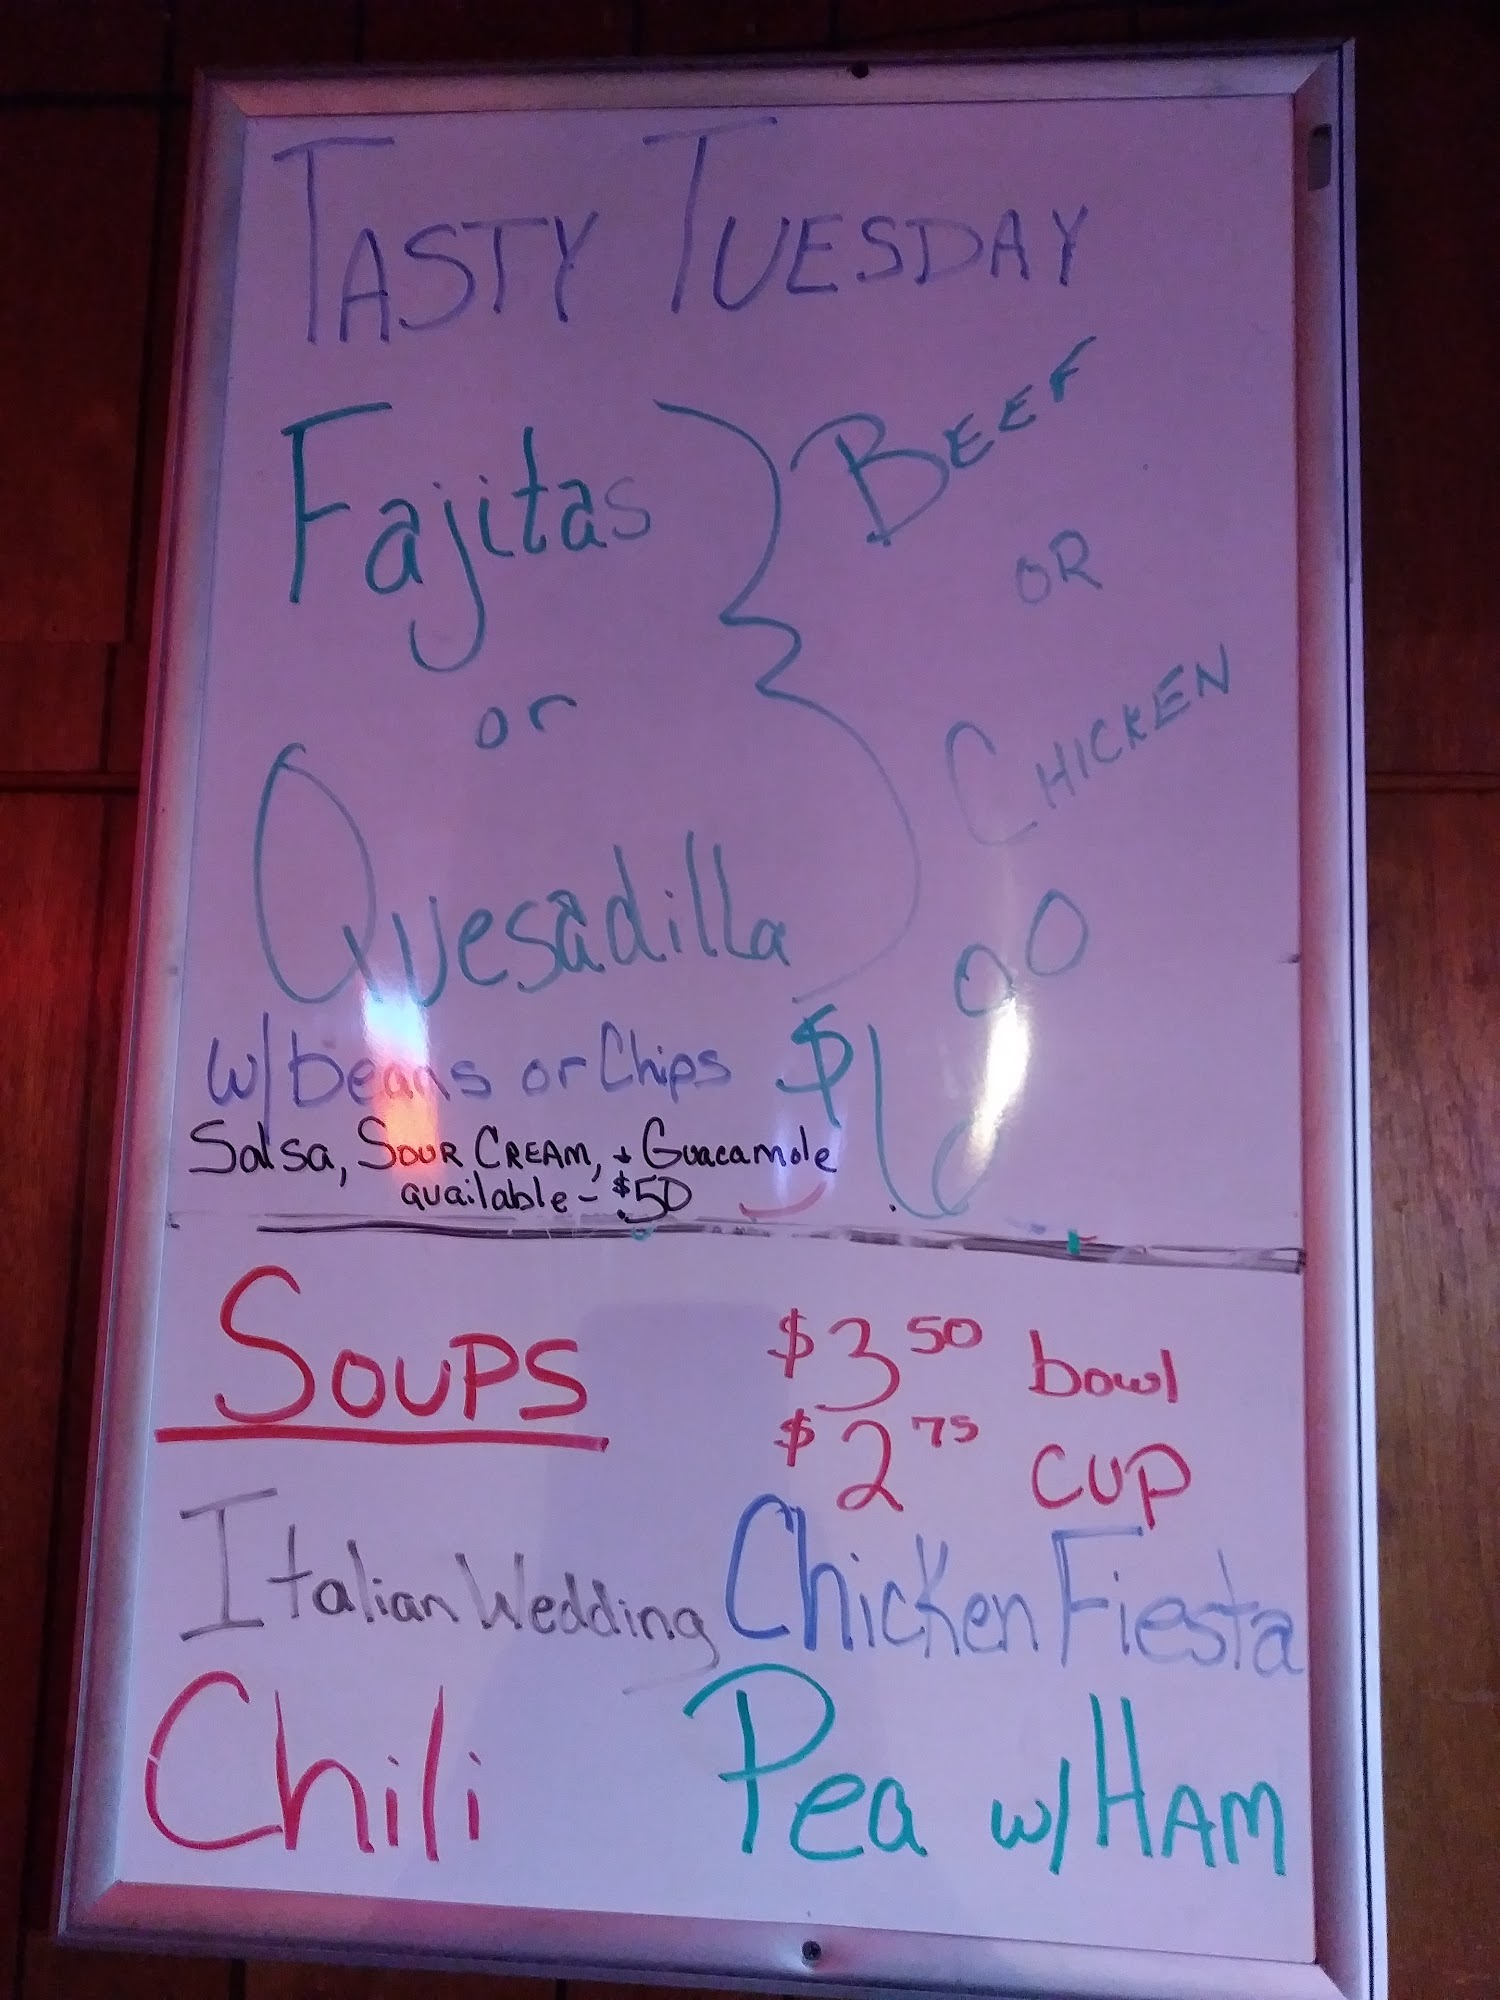 TASTY TUESDAY
Fajitas
BEEF
OR
CHICKEN
or
Quesadilla
w/beans or Chips
$6.00
Salsa, SOUR CREAM, + Guacamole
available - $.50
SOUPS
$3.50 bowl
$2.75 CUP
Italian Wedding
Chicken Fiesta
Chili
Pea w/HAM